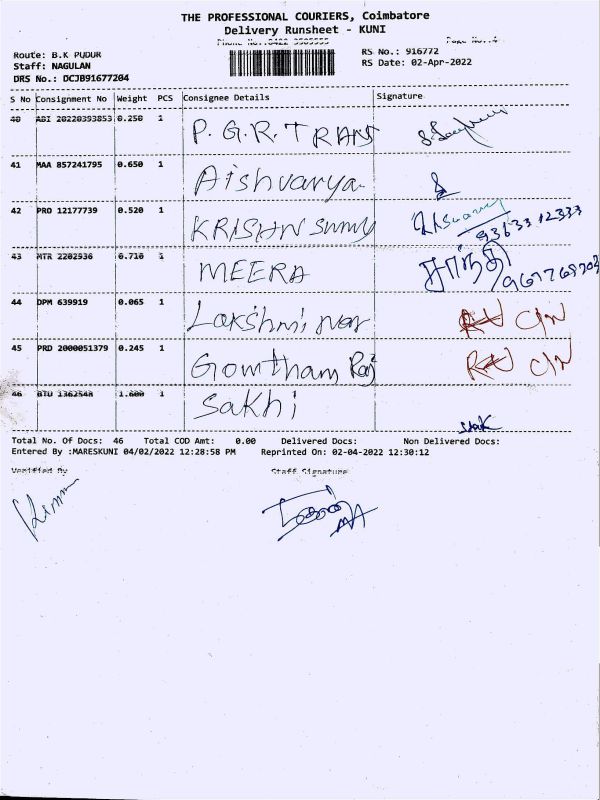 THE PROFESSIONAL COURIERS, Coimbatore
Delivery Runsheet - KUNI
Phone No.:0422 3505555 Page No.:4
Route: B.K PUDUR RS No.: 916772
Staff: NAGULAN RS Date: 02-Apr-2022
DRS No.: DCJB91677204
S No Consignment No Weight PCS Consignee Details Signature
40 ABI 20220393853 0.250 1 P.G.R.TRANS
41 MAA 857241795 0.650 1 Aishvarya
42 PRO 12177739 0.520 1 KRISHN Sunny 9363312333
43 MTR 2202936 0.710 1 MEERA சாந்தி
44 DPM 639919 0.065 1 Lakshmi C/N
45 PRD 2000051379 0.245 1 Gowtham Raj C/N
46 BTU 1362548 1.600 1 Sakhi
Total No. Of Docs: 46 Total COD Amt: 0.00 Delivered Docs: Non Delivered Docs:
Entered By :MARESKUNI 04/02/2022 12:28:58 PM Reprinted On: 02-04-2022 12:30:12
Verified By Staff Signature